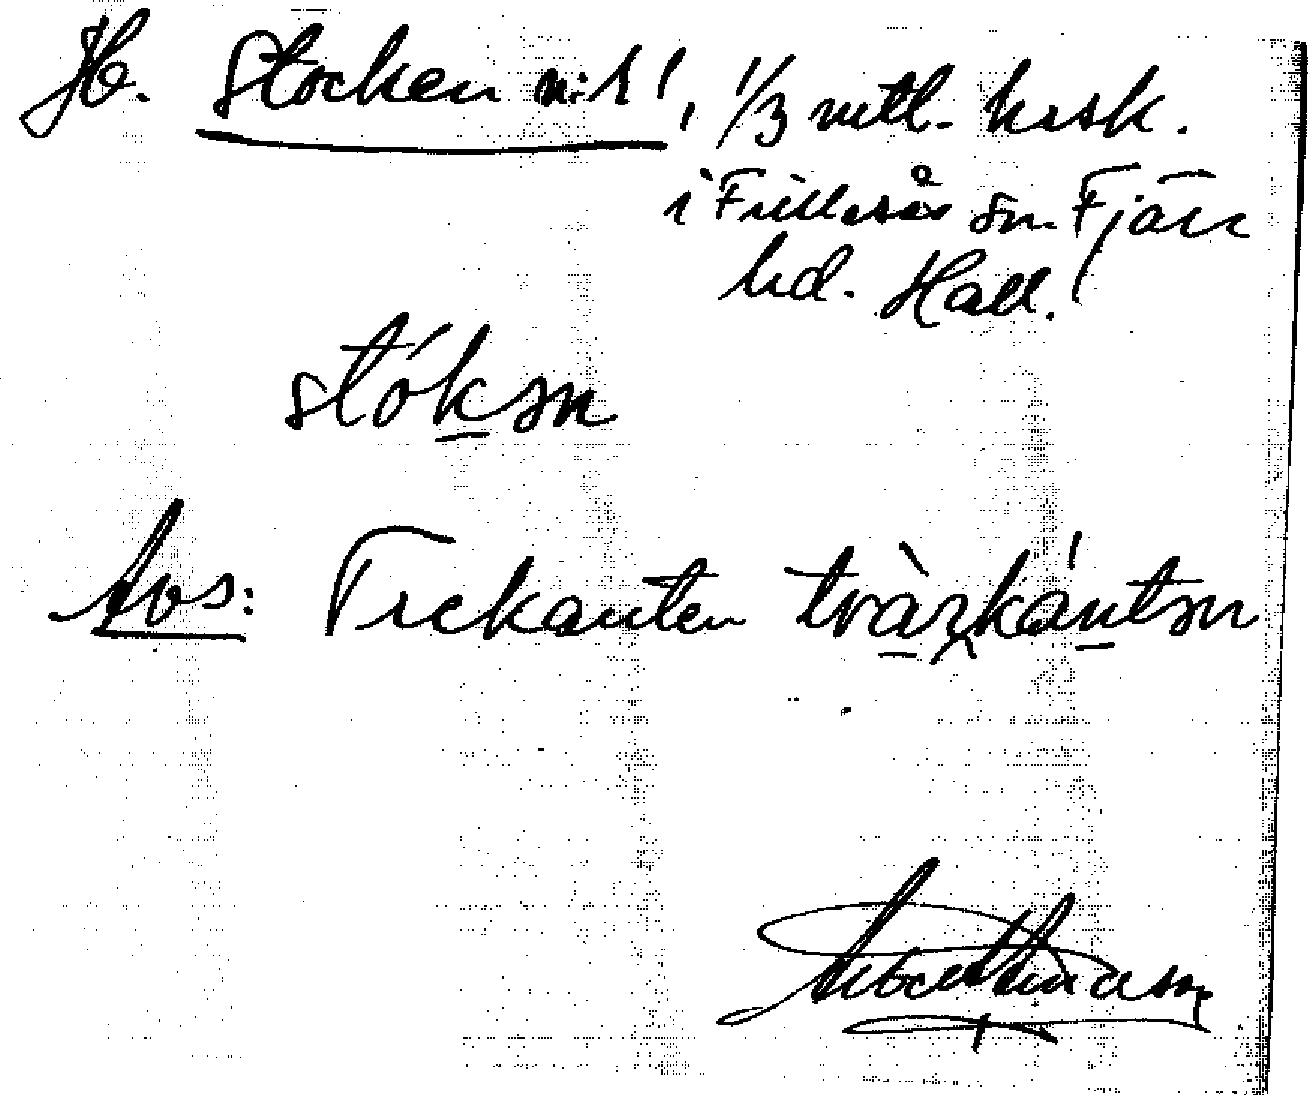 Hb. Stocken n:r 1, 1/3 mtl. krsk.
i Frillesås sn. Fjäre
hd. Hall.
stókən
Avs: Trekanten